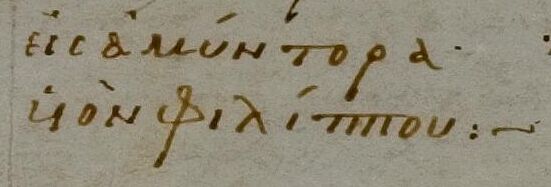 εἰς ἀμύντορα·
υἱὸν φιλίππου :~